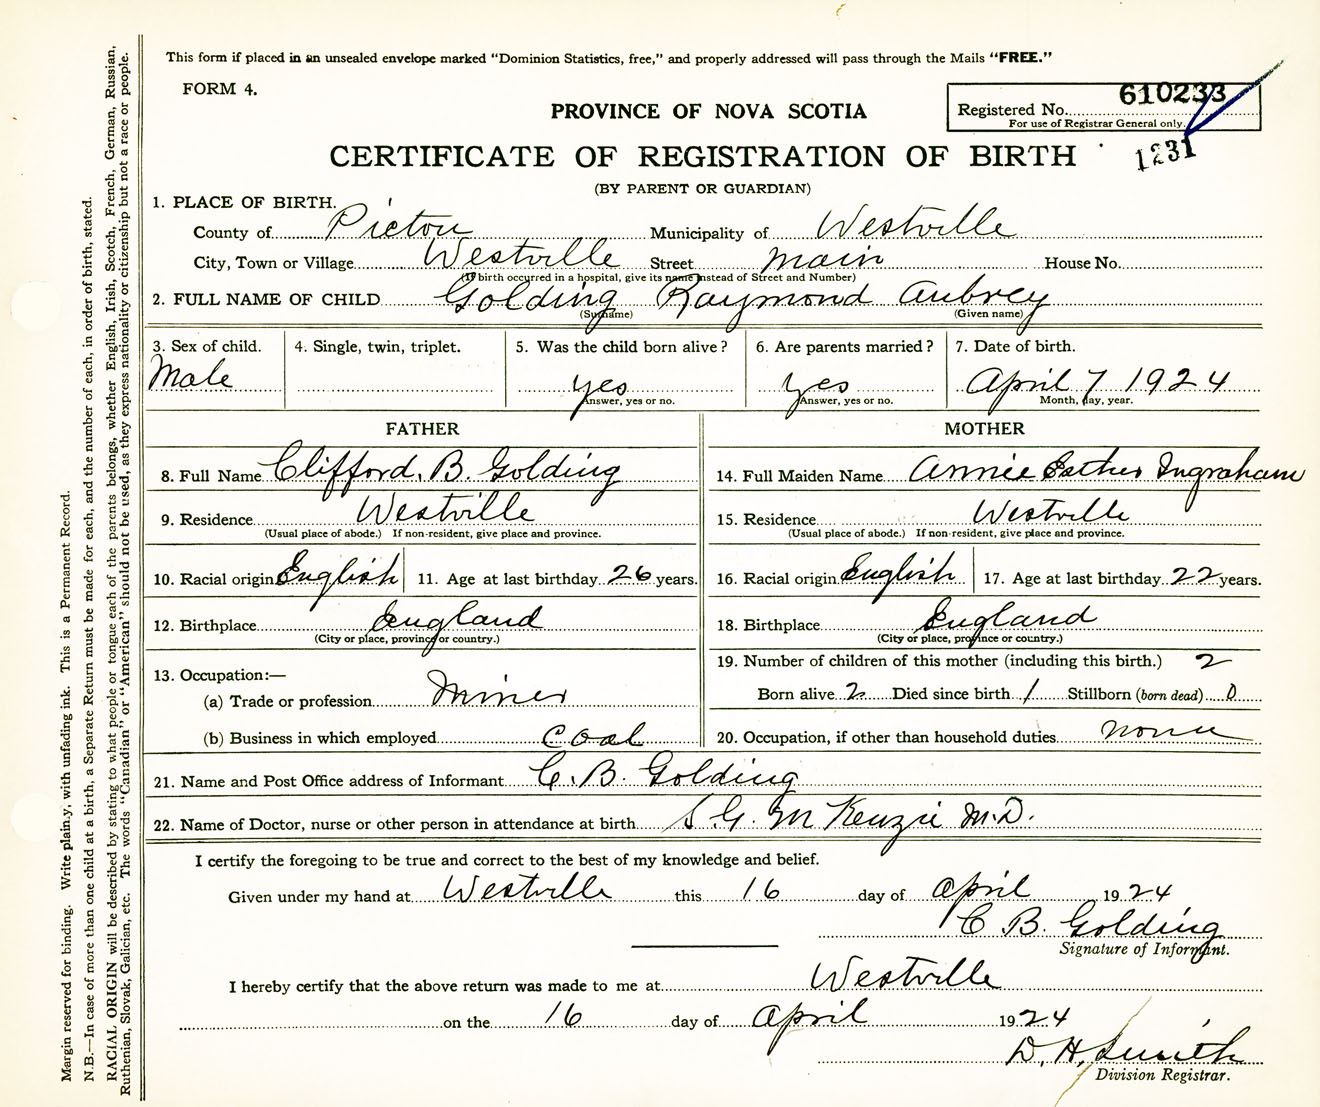 This form if placed in an unsealed envelope marked "Dominion Statistics, free," and properly addressed will pass through the Mails "FREE."
FORM 4.
PROVINCE OF NOVA SCOTIA
Registered No. 610233
For use of Registrar General only.
1231
CERTIFICATE OF REGISTRATION OF BIRTH
(BY PARENT OR GUARDIAN)
1. PLACE OF BIRTH.
County of Pictou Municipality of Westville
City, Town or Village Westville Street Main House No.
(If birth occurred in a hospital, give its name instead of Street and Number)
2. FULL NAME OF CHILD Golding Raymond Aubrey
(Surname) (Given name)
3. Sex of child. 4. Single, twin, triplet. 5. Was the child born alive? 6. Are parents married? 7. Date of birth.
Male yes yes April 7 1924
Answer, yes or no. Answer, yes or no. Month, day, year.
FATHER MOTHER
8. Full Name Clifford. B. Golding 14. Full Maiden Name Annie Esther Ingraham
9. Residence Westville 15. Residence Westville
(Usual place of abode.) If non-resident, give place and province. (Usual place of abode.) If non-resident, give place and province.
10. Racial origin English 11. Age at last birthday 26 years. 16. Racial origin English 17. Age at last birthday 22 years.
12. Birthplace England 18. Birthplace England
(City or place, province or country.) (City or place, province or country.)
13. Occupation:— 19. Number of children of this mother (including this birth.) 2
(a) Trade or profession Miner Born alive 2 Died since birth 1 Stillborn (born dead) 0
(b) Business in which employed Coal 20. Occupation, if other than household duties none
21. Name and Post Office address of Informant C. B. Golding
22. Name of Doctor, nurse or other person in attendance at birth S. G. McKenzie M.D.
I certify the foregoing to be true and correct to the best of my knowledge and belief.
Given under my hand at Westville this 16 day of April 1924
C B. Golding
Signature of Informant.
I hereby certify that the above return was made to me at Westville
on the 16 day of April 1924
D. H. Smith
Division Registrar.
Margin reserved for binding. Write plainly, with unfading ink. This is a Permanent Record.
N.B.—In case of more than one child at a birth, a Separate Return must be made for each, and the number of each, in order of birth, stated.
RACIAL ORIGIN will be described by stating to what people or tongue each of the parents belongs, whether English, Irish, Scotch, French, German, Russian,
Ruthenian, Slovak, Galician, etc. The words "Canadian" or "American" should not be used, as they express nationality or citizenship but not a race or people.